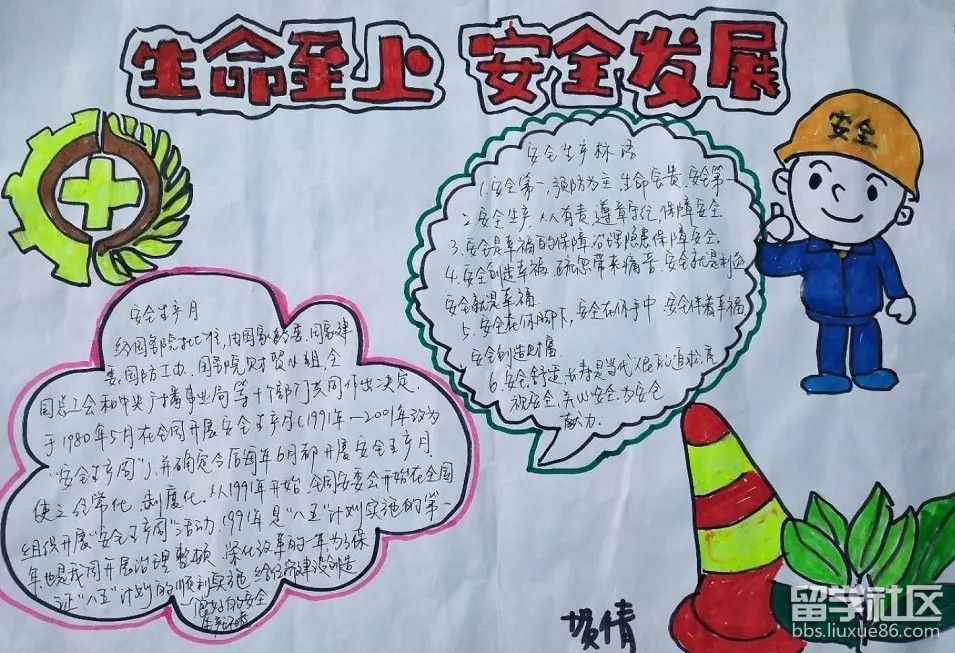 生命至上 安全发展
安全
安全生产标语
1.安全第一,预防为主,生命宝贵,安全第一
2.安全生产,人人有责,遵章守纪,保障安全
3.安全是幸福的保障,治理隐患保障安全。
4.安全创造幸福,疏忽带来痛苦,安全就是利益
安全就是幸福
5.安全在你脚下,安全在你手中.安全伴着幸福
安全创造财富
6.安全、舒适、长寿是当代人民的追求,
视安全,关心安全,为安全
献力.
安全生产月
经国务院批准,由国家经委、国家建
委、国防工办、国务院财贸小组、全
国总工会和中央广播事业局等十个部门共同作出决定.
于1980年5月在全国开展安全生产月(1991年—2001年改为
“安全生产周”),并确定今后每年6月都开展安全生产月
使之经常化、制度化.从1991年开始,全国安委会开始在全国
组织开展“安全生产周”活动.1991年是“八五”计划实施的第一
年也是我国开展治理整顿、深化改革的一年为了保
证“八五”计划的顺利实施,给经济建设创造
良好的安全
生产环境
倩
留学社区
bbs.liuxue86.com